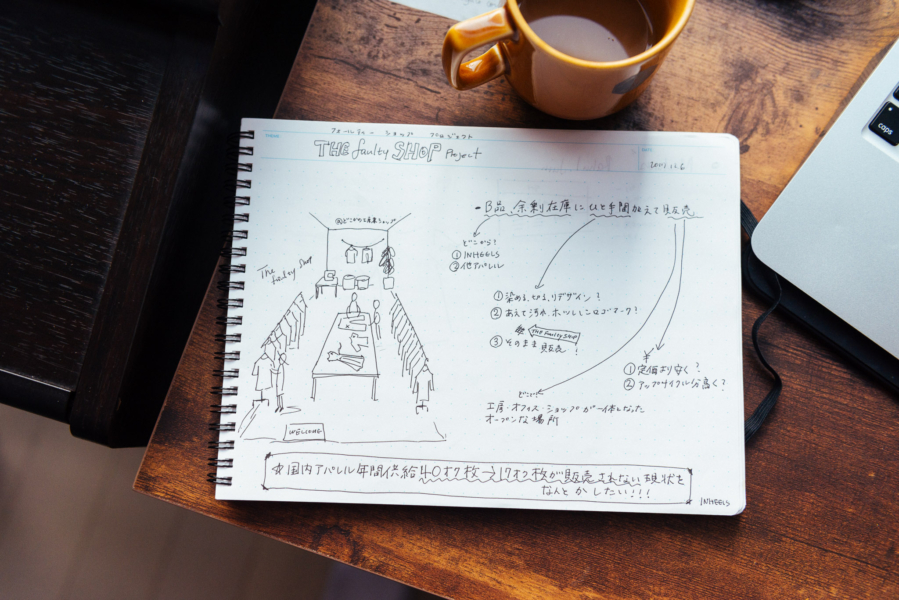 フォールティー ショップ プロジェクト
THE faulty SHOP Project
The
faulty Shop
WELCOME
- B品、余剰在庫にひと手間加えて販売
どこから?
① INHEELS
② 他アパレル
① 染める、切る、リデザイン?
② あえて汚れ、ホツレにロゴマーク?
THE faulty SHOP
③ そのまま販売!
¥
① 定価より安く?
② アップサイクル分高く?
どこで?
工房・オフィス・ショップが一体となった
オープンな場所
国内アパレル年間供給40オク枚→17オク枚が販売されない現状を
なんとかしたい!!!
INHEELS
caps